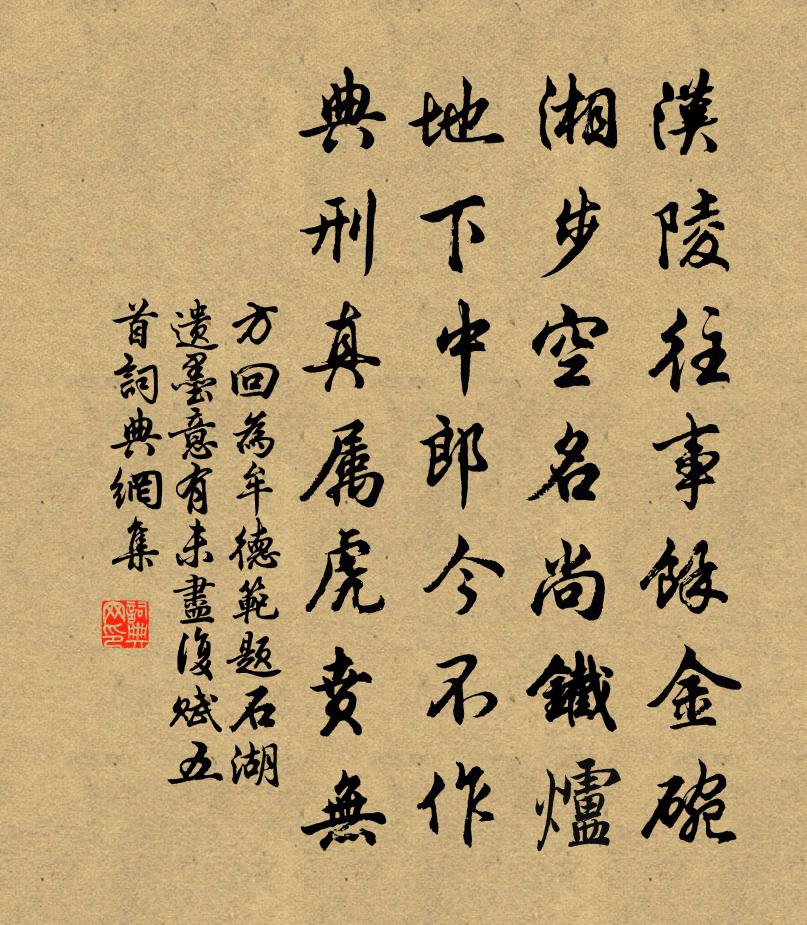 漢陵往事餘金碗
湘步空名尚鐵爐
地下中郎今不作
典刑真属虎賁無
方回為牟德範題石湖
遺墨意有未盡復賦五
首詞典網集
詞典网印